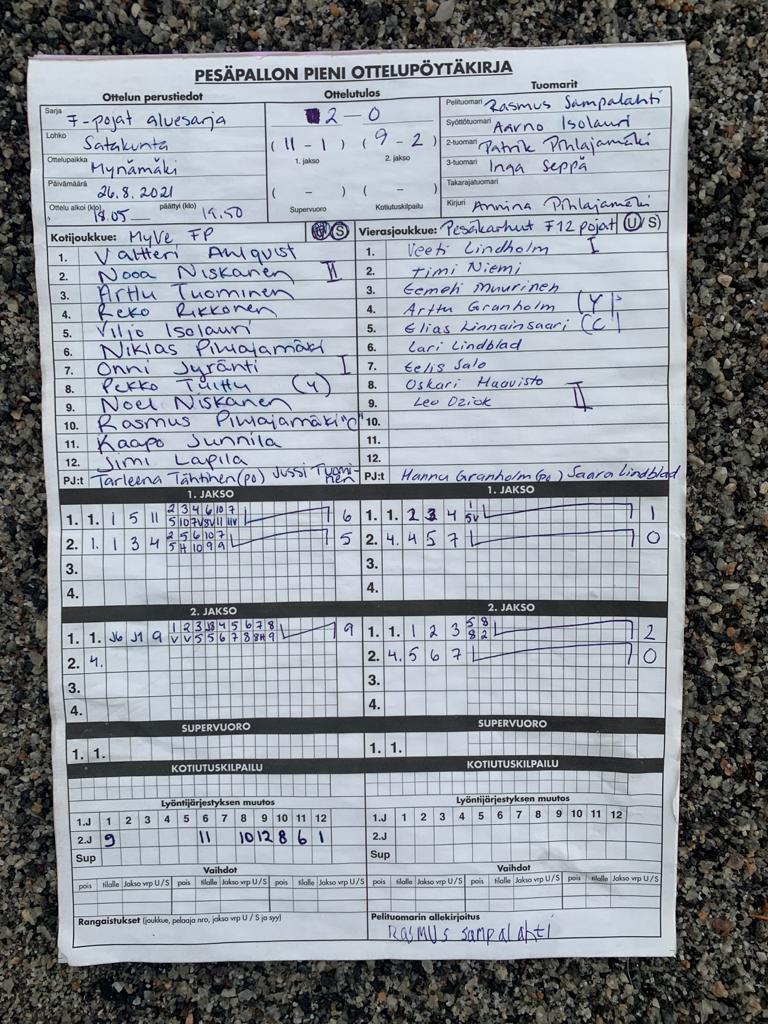 PESÄPALLON PIENI OTTELUPÖYTÄKIRJA
Ottelun perustiedot
Sarja F-pojat aluesarja
Lohko Satakunta
Ottelupaikka Mynämäki
Päivämäärä 26.8.2021
Ottelu alkoi (klo) 18.05 päättyi (klo) 19.50
Ottelutulos
2 - 0
( 11 - 1 ) ( 9 - 2 )
1. jakso 2. jakso
( - ) ( - )
Supervuoro Kotiutuskilpailu
Tuomarit
Pelituomari Rasmus Sampalahti
Syöttötuomari Aarno Isolauri
2-tuomari Patrik Pihlajamäki
3-tuomari Inga Seppä
Takarajatuomari
Kirjuri Annina Pihlajamäki
Kotijoukkue: MyVe FP
1. Valtteri Ahlqvist
2. Nooa Niskanen II
3. Arttu Tuominen
4. Reko Rikkonen
5. Viljo Isolauri
6. Niklas Pihlajamäki
7. Onni Jyränti I
8. Pekko Tuittu (Y)
9. Noel Niskanen
10. Rasmus Pihlajamäki "C"
11. Kaapo Junnila
12. Jimi Lapila
PJ:t Tarleena Tähtinen (po) Jussi Tuominen
Vierasjoukkue: Pesäkarhut F12 pojat (U/S)
1. Veeti Lindholm I
2. Timi Niemi
3. Eemeli Muurinen
4. Arttu Granholm (Y)
5. Elias Linnainsaari (C)
6. Lari Lindblad
7. Eelis Salo
8. Oskari Haavisto
9. Leo Dziok II
10.
11.
12.
PJ:t Hannu Granholm (po) Saara Lindblad
1. JAKSO
1. 1. 1 5 11 2 3 4 6 10 7 6
2. 1. 1 3 4 2 5 6 10 7 5
5 4 10 9 9
3.
4.
1. JAKSO
1. 1. 2 3 4 1 5V 1
2. 4. 4 5 7 0
3.
4.
2. JAKSO
1. 1. J6 J1 9 9
2. 4.
3.
4.
2. JAKSO
1. 1. 1 2 3 5 8 2
8 2
2. 4. 5 6 7 0
3.
4.
SUPERVUORO
1. 1.
SUPERVUORO
1. 1.
KOTIUTUSKILPAILU
KOTIUTUSKILPAILU
Lyöntijärjestyksen muutos
1.J 1 2 3 4 5 6 7 8 9 10 11 12
2.J 9 11 10 12 8 6 1
Sup
Lyöntijärjestyksen muutos
1.J 1 2 3 4 5 6 7 8 9 10 11 12
2.J
Sup
Vaihdot
pois tilalle Jakso vrp U/S pois tilalle Jakso vrp U/S pois tilalle Jakso vrp U/S
Vaihdot
pois tilalle Jakso vrp U/S pois tilalle Jakso vrp U/S pois tilalle Jakso vrp U/S
Rangaistukset (joukkue, pelaaja nro, jakso vrp U / S ja syy)
Pelituomarin allekirjoitus
Rasmus Sampalahti